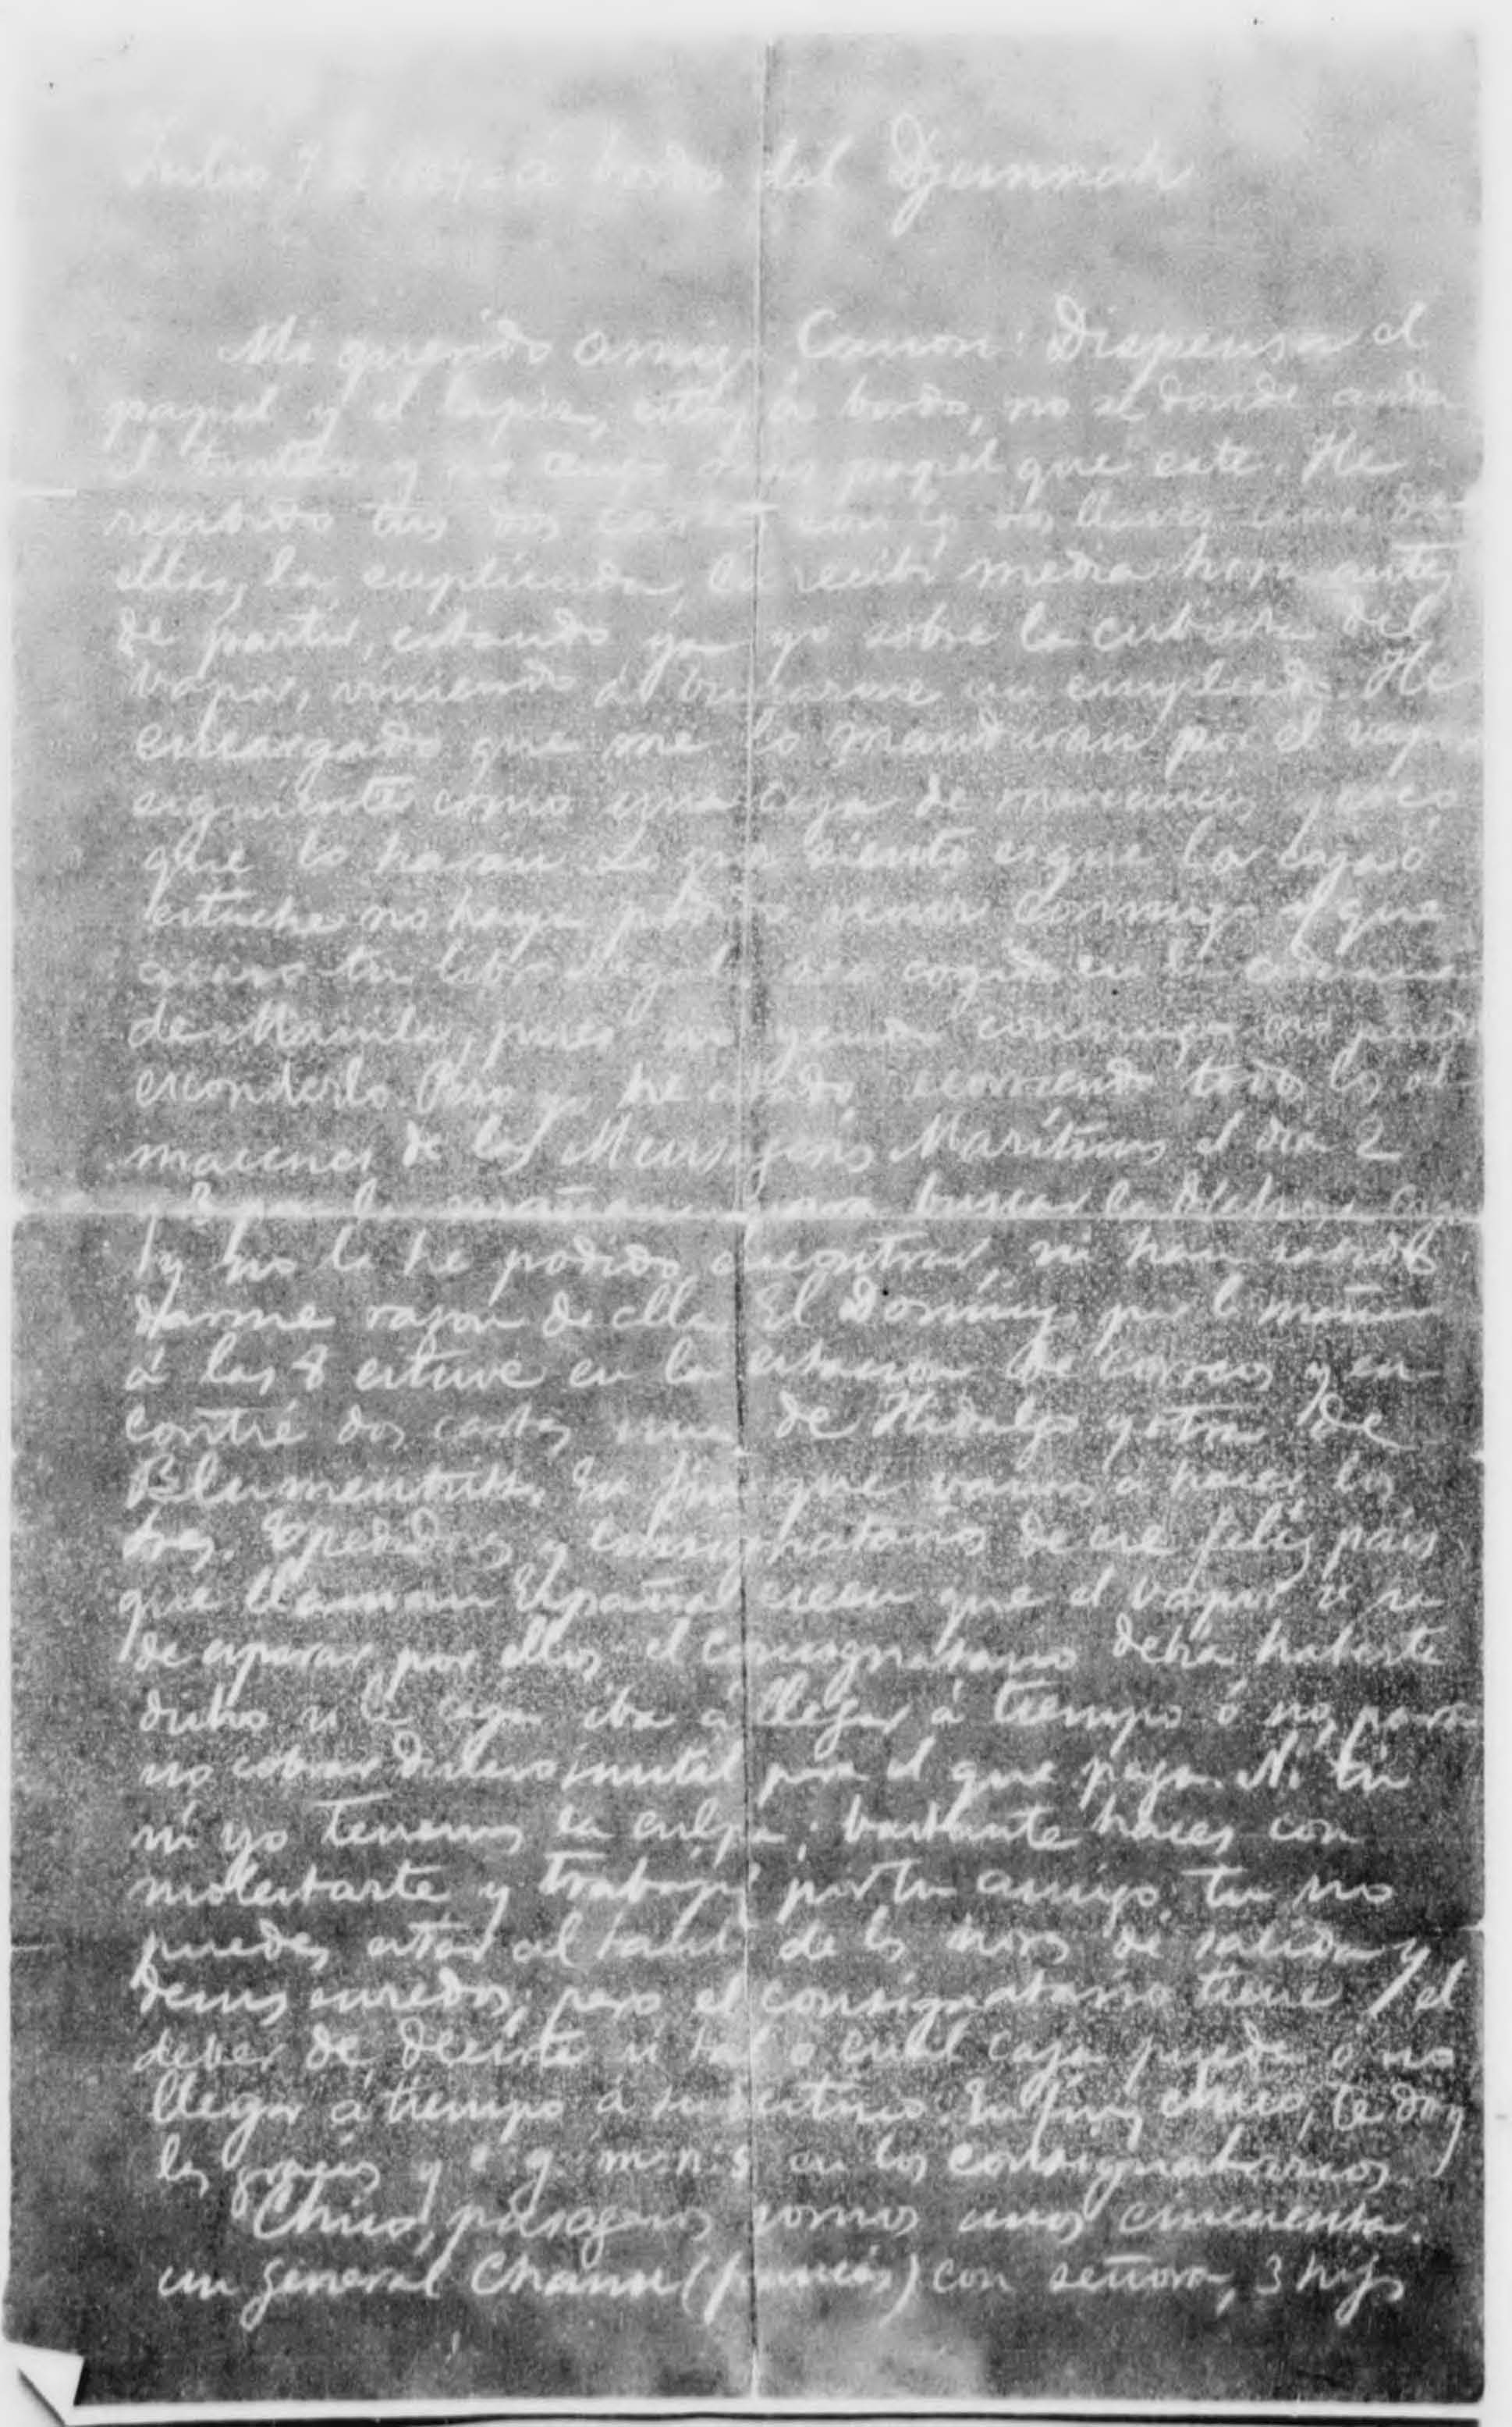 Julio 7 de 1887 - á bordo del Djemnah
Mi querido amigo Canon: Dispensa el
papel y el lapiz, estoy á bordo, no sé donde anda
el tintero y no tengo mas papel que este. He
recibido tus dos cartas con las dos llaves
ellas, la duplicada la recibí media hora antes
de partir, estando ya yo sobre la cubierta del
vapor, viniendo á buscarme un empleado. He
encargado que me lo mandaran por el vapor
siguiente como una caja de mercancias, y creo
que lo haran. Lo que siento es que la caja ó
estuche no haya podido venir conmigo y que
acaso tu libro llegue á ser cogido en la aduana
de Manila, pues no yendo conmigo no puedo
esconderlo. Pero yo he estado recorriendo todos los al-
macenes de las Mensagerias Maritimas el dia 2
por la mañana para buscar la dichosa caja
y no la he podido encontrar, ni han sabido
darme razon de ella. El Domingo por la mañana
á las 8 estuve en la estacion de correos y en-
contré dos cartas una de Hidalgo y otra de
Blumentritt. En fin que vamos á hacer los
Sres. Expedidores y consignatarios de ese feliz pais
que llaman España creen que el vapor se ha
de esperar por ellos; el consignatario debia haberte
dicho si la caja iba á llegar á tiempo ó no, para
no cobrar dinero inutil para el que paga. Ni tú
ni yo tenemos la culpa; bastante haces con
molestarte y trabajar por tu amigo; tu no
puedes estar al tanto de las horas de salida y
demas enredos, pero el consignatario tiene el
deber de decirte si tal ó cual caja puede ó no
llegar á tiempo á su destino. En fin, chico, te doy
las gracias y en los consignatarios
Chico, pasageros somos unos cincuenta:
un general Chanu (francés) con señora, 3 hijos